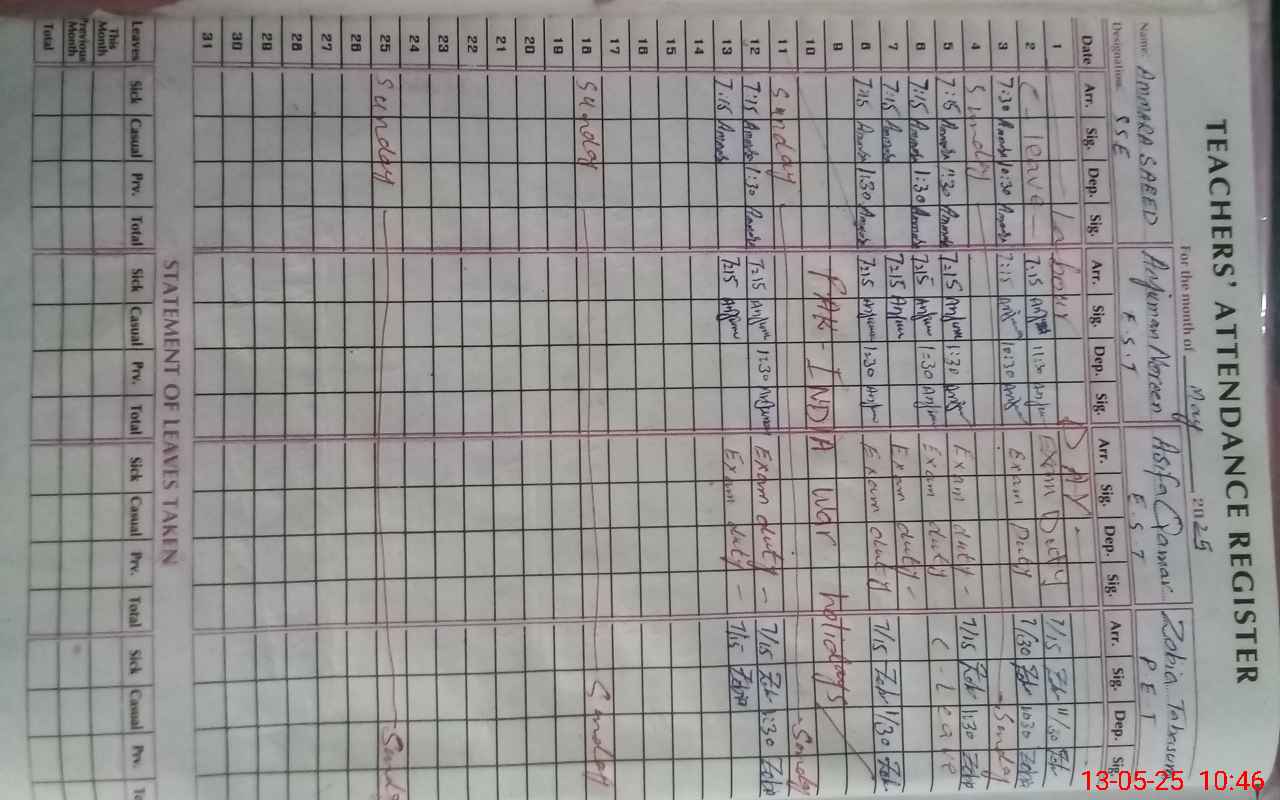 TEACHERS' ATTENDANCE REGISTER
For the month of May 2025
Name: AMMARA SAEED Anjuman Noreen Asifa Qamar Zobia Tabasum
Designation S S E E.S.T E.S.T P E T
Date Arr. Sig. Dep. Sig. Arr. Sig. Dep. Sig. Arr. Sig. Dep. Sig. Arr. Sig. Dep. Sig.
1 Labour DAY -
2 C - leave - 7:15 11:30 Exam Duty 7/15 11/30
3 7:30 10:30 7:15 10:30 Exam Duty 7/30 10:30
4 Sunday Sunday
5 7:15 1:30 7:15 1:30 Exam duty - 7/15 1:30
6 7:15 1:30 7:15 1:30 Exam duty C - Leave
7 7:15 7:15 Exam duty -
8 7:15 1:30 7:15 1:30 Exam duty 7/15 1/30
9
10 PAK - INDIA War holidays
11 Sunday Sunday
12 7:15 1:30 7:15 1:30 Exam duty - 7/15 1:30
13 7:15 7:15 Exam duty - 7/15
14
15
16
17
18 Sunday Sunday
19
20
21
22
23
24
25 Sunday
26
27
28
29
30
31
STATEMENT OF LEAVES TAKEN
Leaves Sick Casual Prv. Total Sick Casual Prv. Total Sick Casual Prv. Total Sick Casual Prv.
This Month
Previous Month
Total
13-05-25 10:46